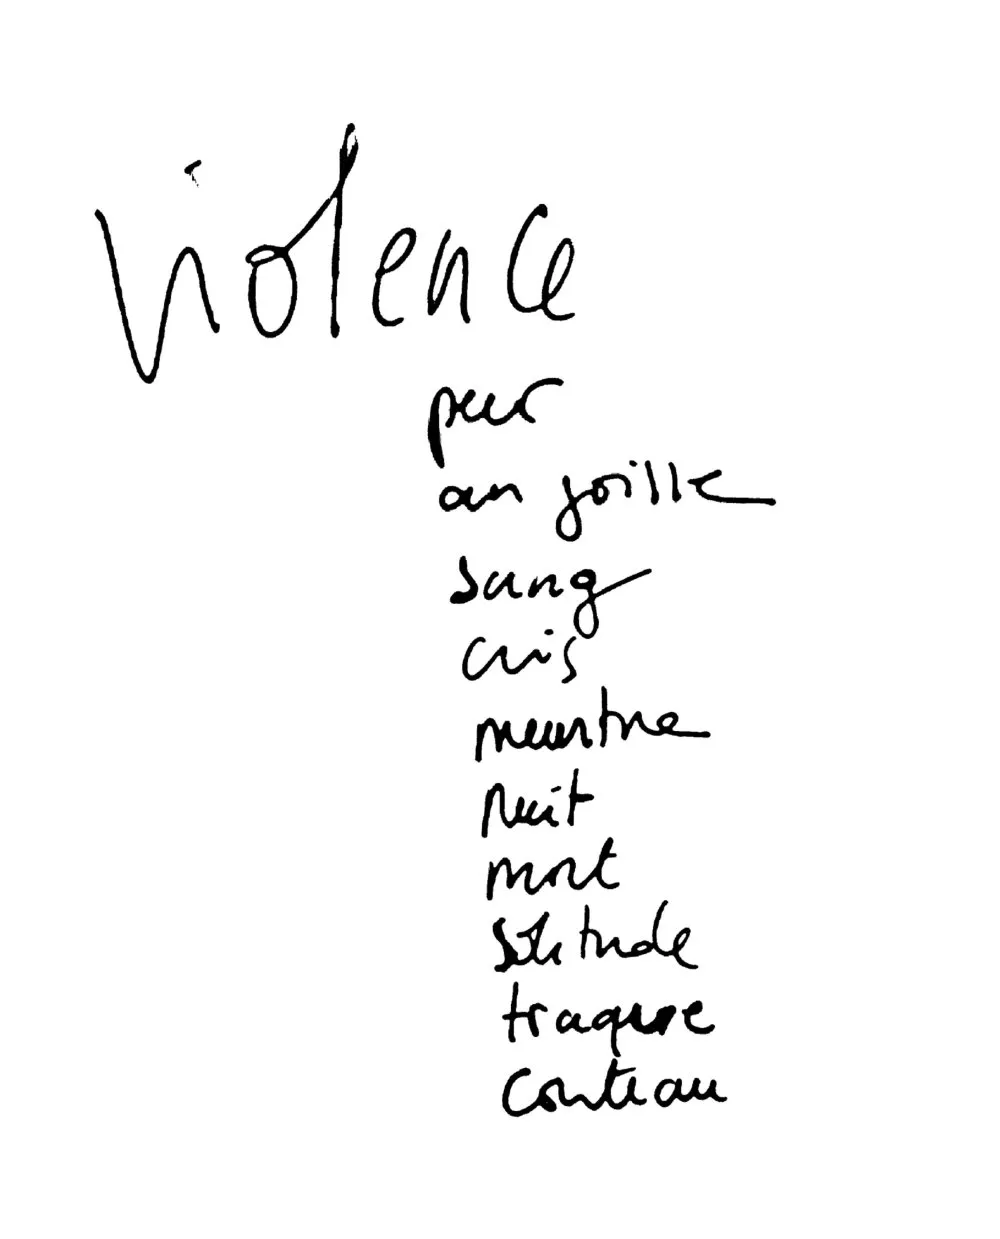 violence
peur
an goisse
sang
cris
meurtre
nuit
mort
solitude
traque
couteau